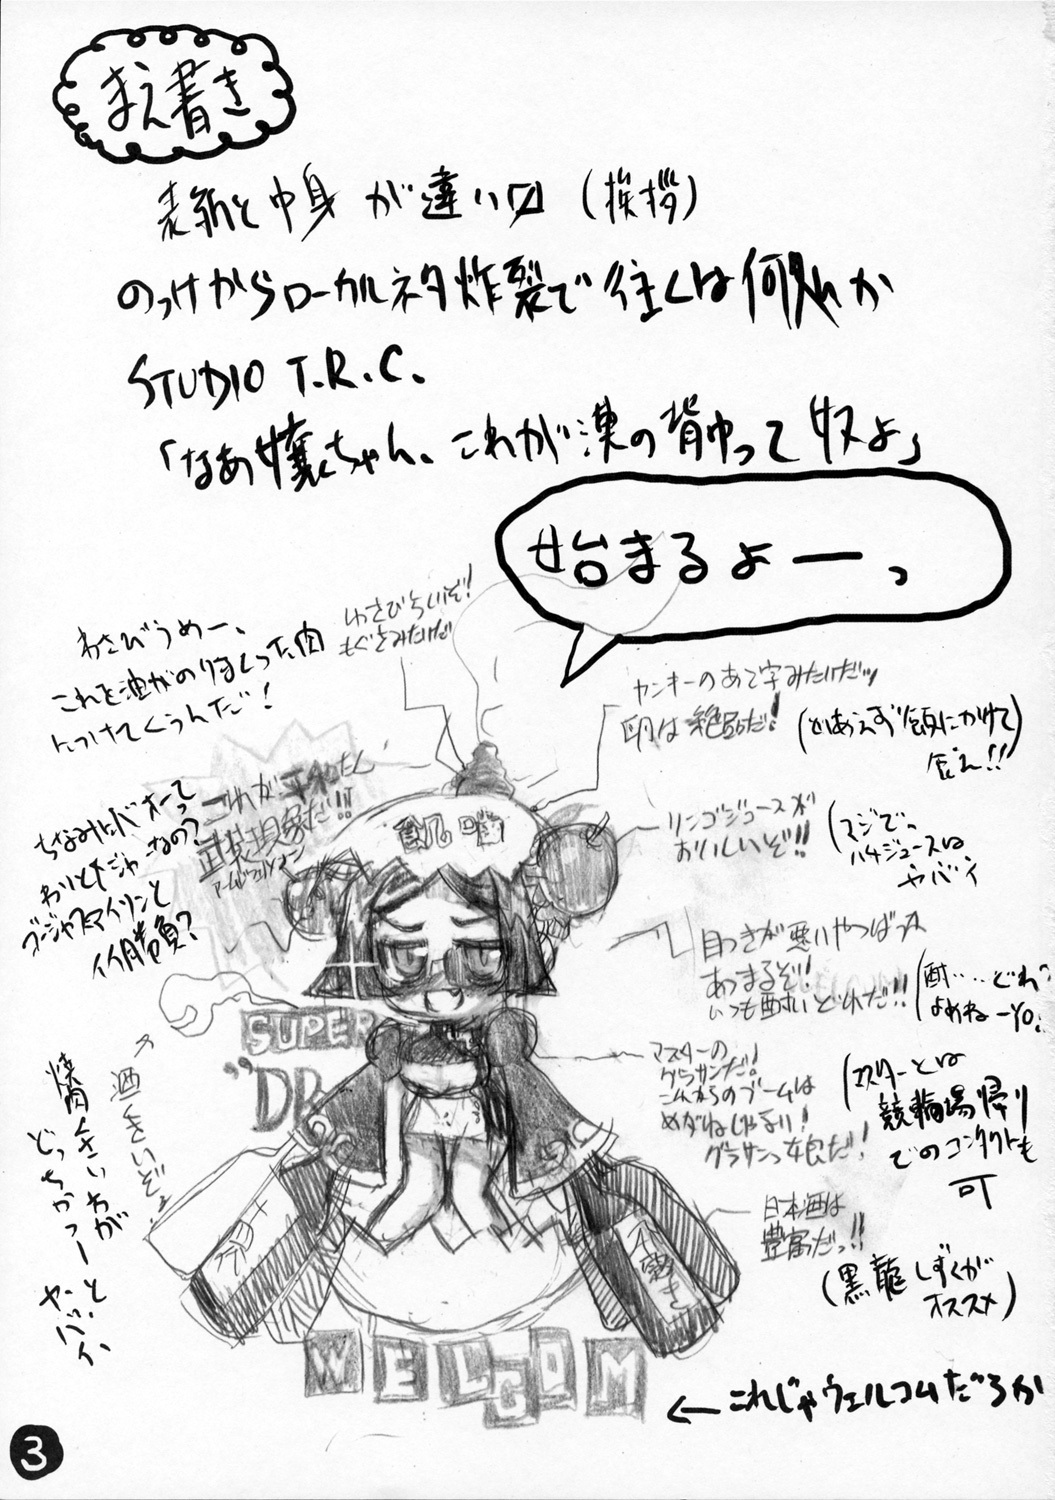 まえ書き
表紙と中身が違い〼(挨拶)
のっけからローカルネタ炸裂で往くは何処か
STUDIO T.R.C.
「なあ嬢ちゃん、これが漢の背中って奴よ」
始まるよーっ
わさびうめー、
これを油がのりまくった肉
につけてくうんだ!
わさびらいぞ!
もぐさみたいだ
ヤンキーのあて字みたいだッ
卵は絶品だ!
(とりあえず飯にかけて
食え!!)
ちなみにバオーって
わりとドジャーなの?
ブージャムマイリンと
イイ勝負?
これが
武装現象だ!!!
アームドフェノメノン
飢
リンゴジュースが
おいしいぞ!!
(マジで。
ハチジュースは
ヤバイ
目つきが悪いやつばっか
あつまるぞ!
いつも酔いどれだ!!
(酎……どれ?
よめねーYO!
マスターの
グラサンだ!
これからのブームは
めがねじゃない!
グラサンっ娘だ!
(マスターとは
競輪場帰り
でのコンタクトも
可
日本酒は
豊富だっ!!
(黒龍しずくが
オススメ)
酒くさいぞ。
焼肉くさいわが
どっちかっつーと。
ヤバイ
SUPER
"DR
WELCOM
←これじゃウェルコムだろが
3